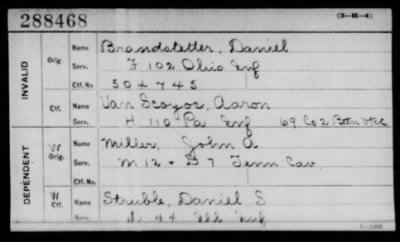 288468
(3-H-4)
INVALID
Orig
Name Brandstetter, Daniel
Serv. F 102 Ohio Inf
Ctf. No. 504745
Ctf.
Name Van Scoyoc, Aaron
Serv. H 110 Pa Inf 69 Co 2 Battn VRC
DEPENDENT
W
Orig.
Name Miller, John A.
Serv. M 12 + D 7 Tenn Cav.
Ctf. No.
W
Ctf.
Name Struble, Daniel S
Serv. 44 Ills Inf